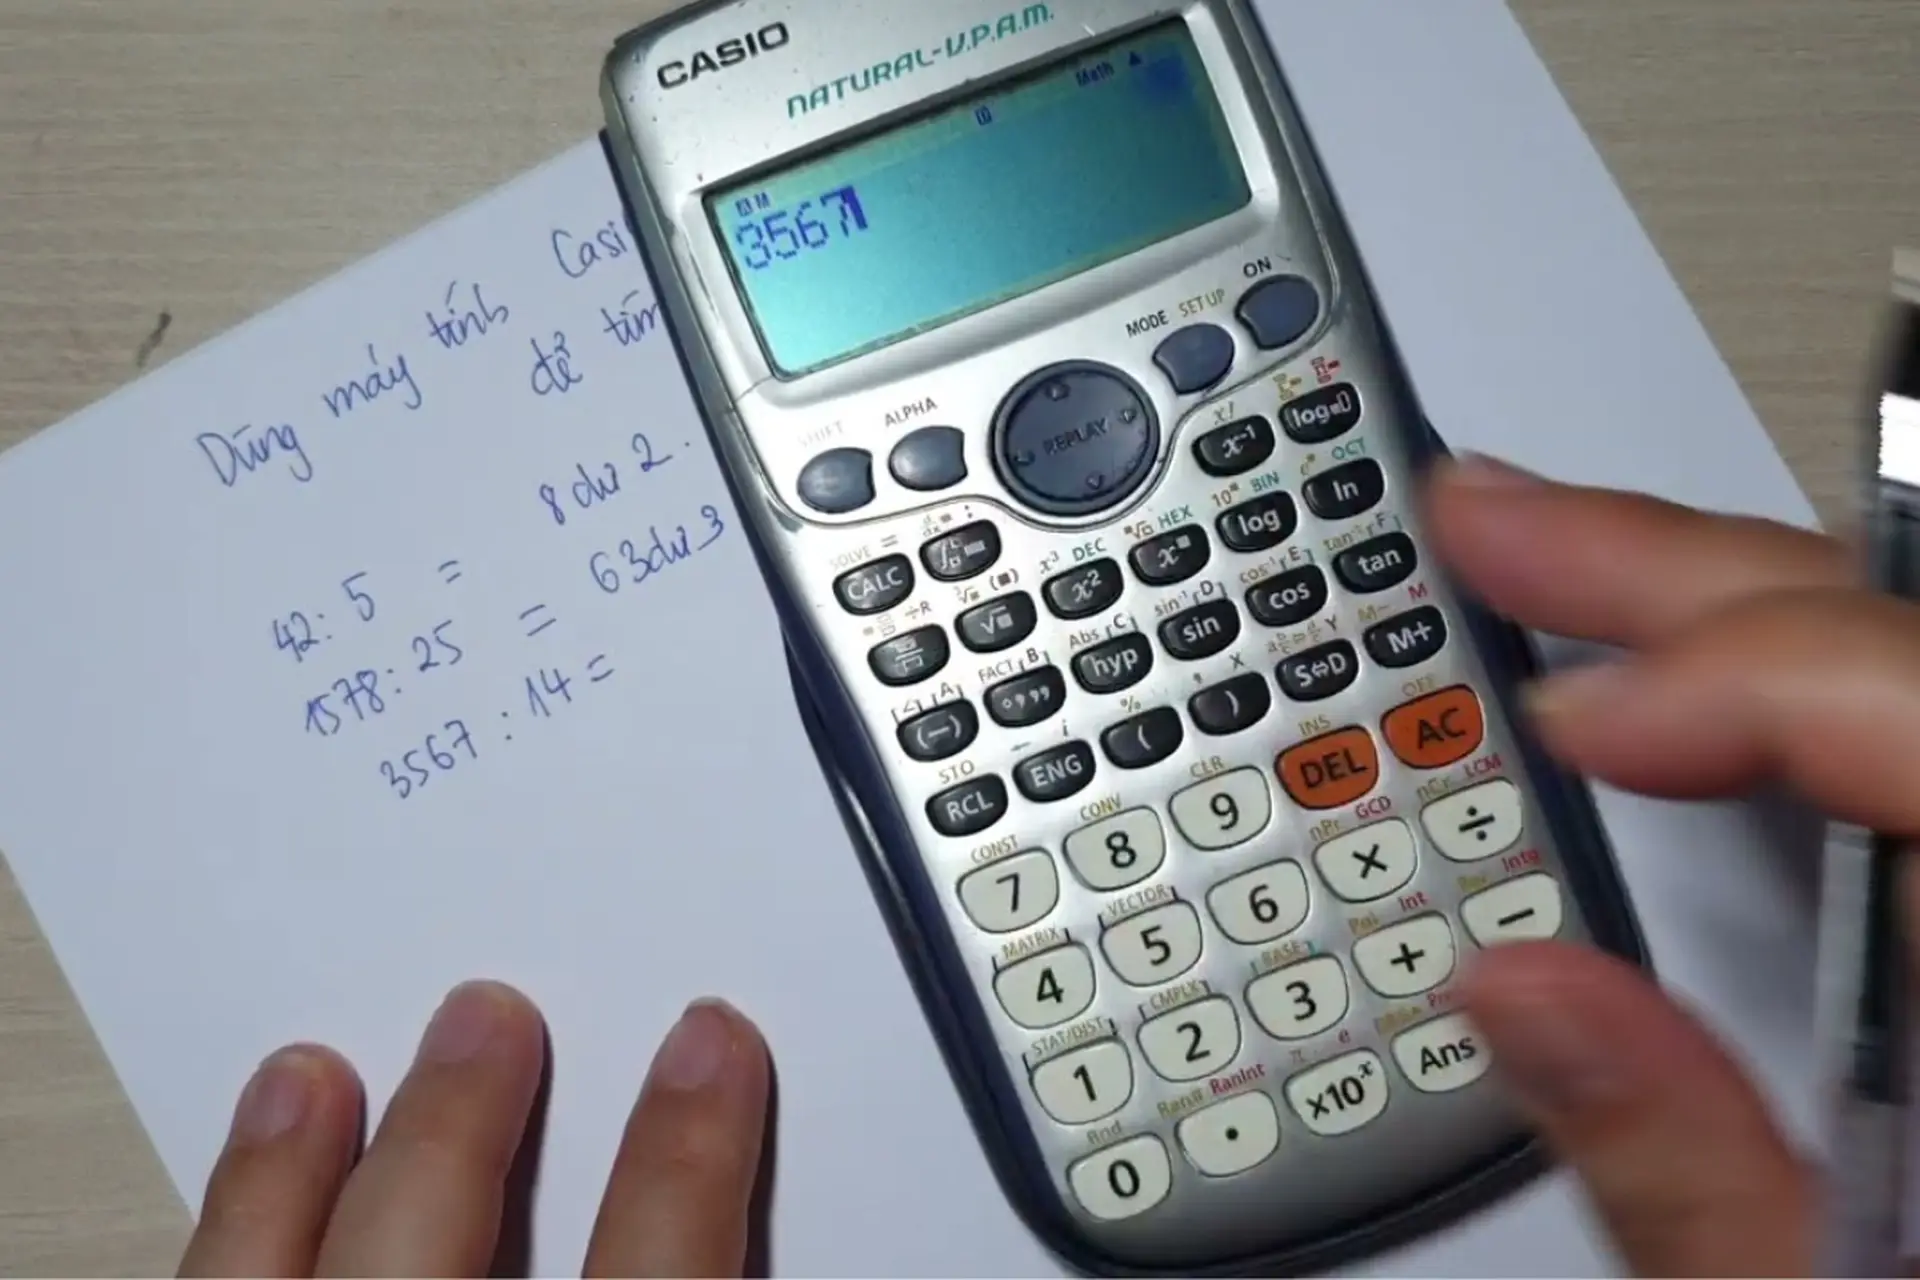 CASIO
NATURAL-V.P.A.M.
Math ▲
M
3567
Dùng máy tính Casi
để tìm
42: 5 = 8 dư 2.
1578: 25 = 63 dư 3
3567 : 14 =
SHIFT ALPHA REPLAY MODE SETUP ON
SOLVE = d/dx :  x! 
CALC x⁻¹ log
÷R x³ DEC HEX 10 BIN e OCT
√ x² x log ln
∠ A FACT B Abs C sin⁻¹ D cos⁻¹ E tan⁻¹ F
(−) hyp sin cos tan
STO ← i % , X Y M− M
RCL ENG ( ) S⇔D M+
CONST CONV CLR INS OFF
7 8 9 DEL AC
MATRIX VECTOR nPr GCD nCr LCM
4 5 6 × ÷
STAT/DIST CMPLX BASE Pol Int Rec Intg
1 2 3 + −
Rnd Ran# RanInt π e
0 . ×10ˣ Ans